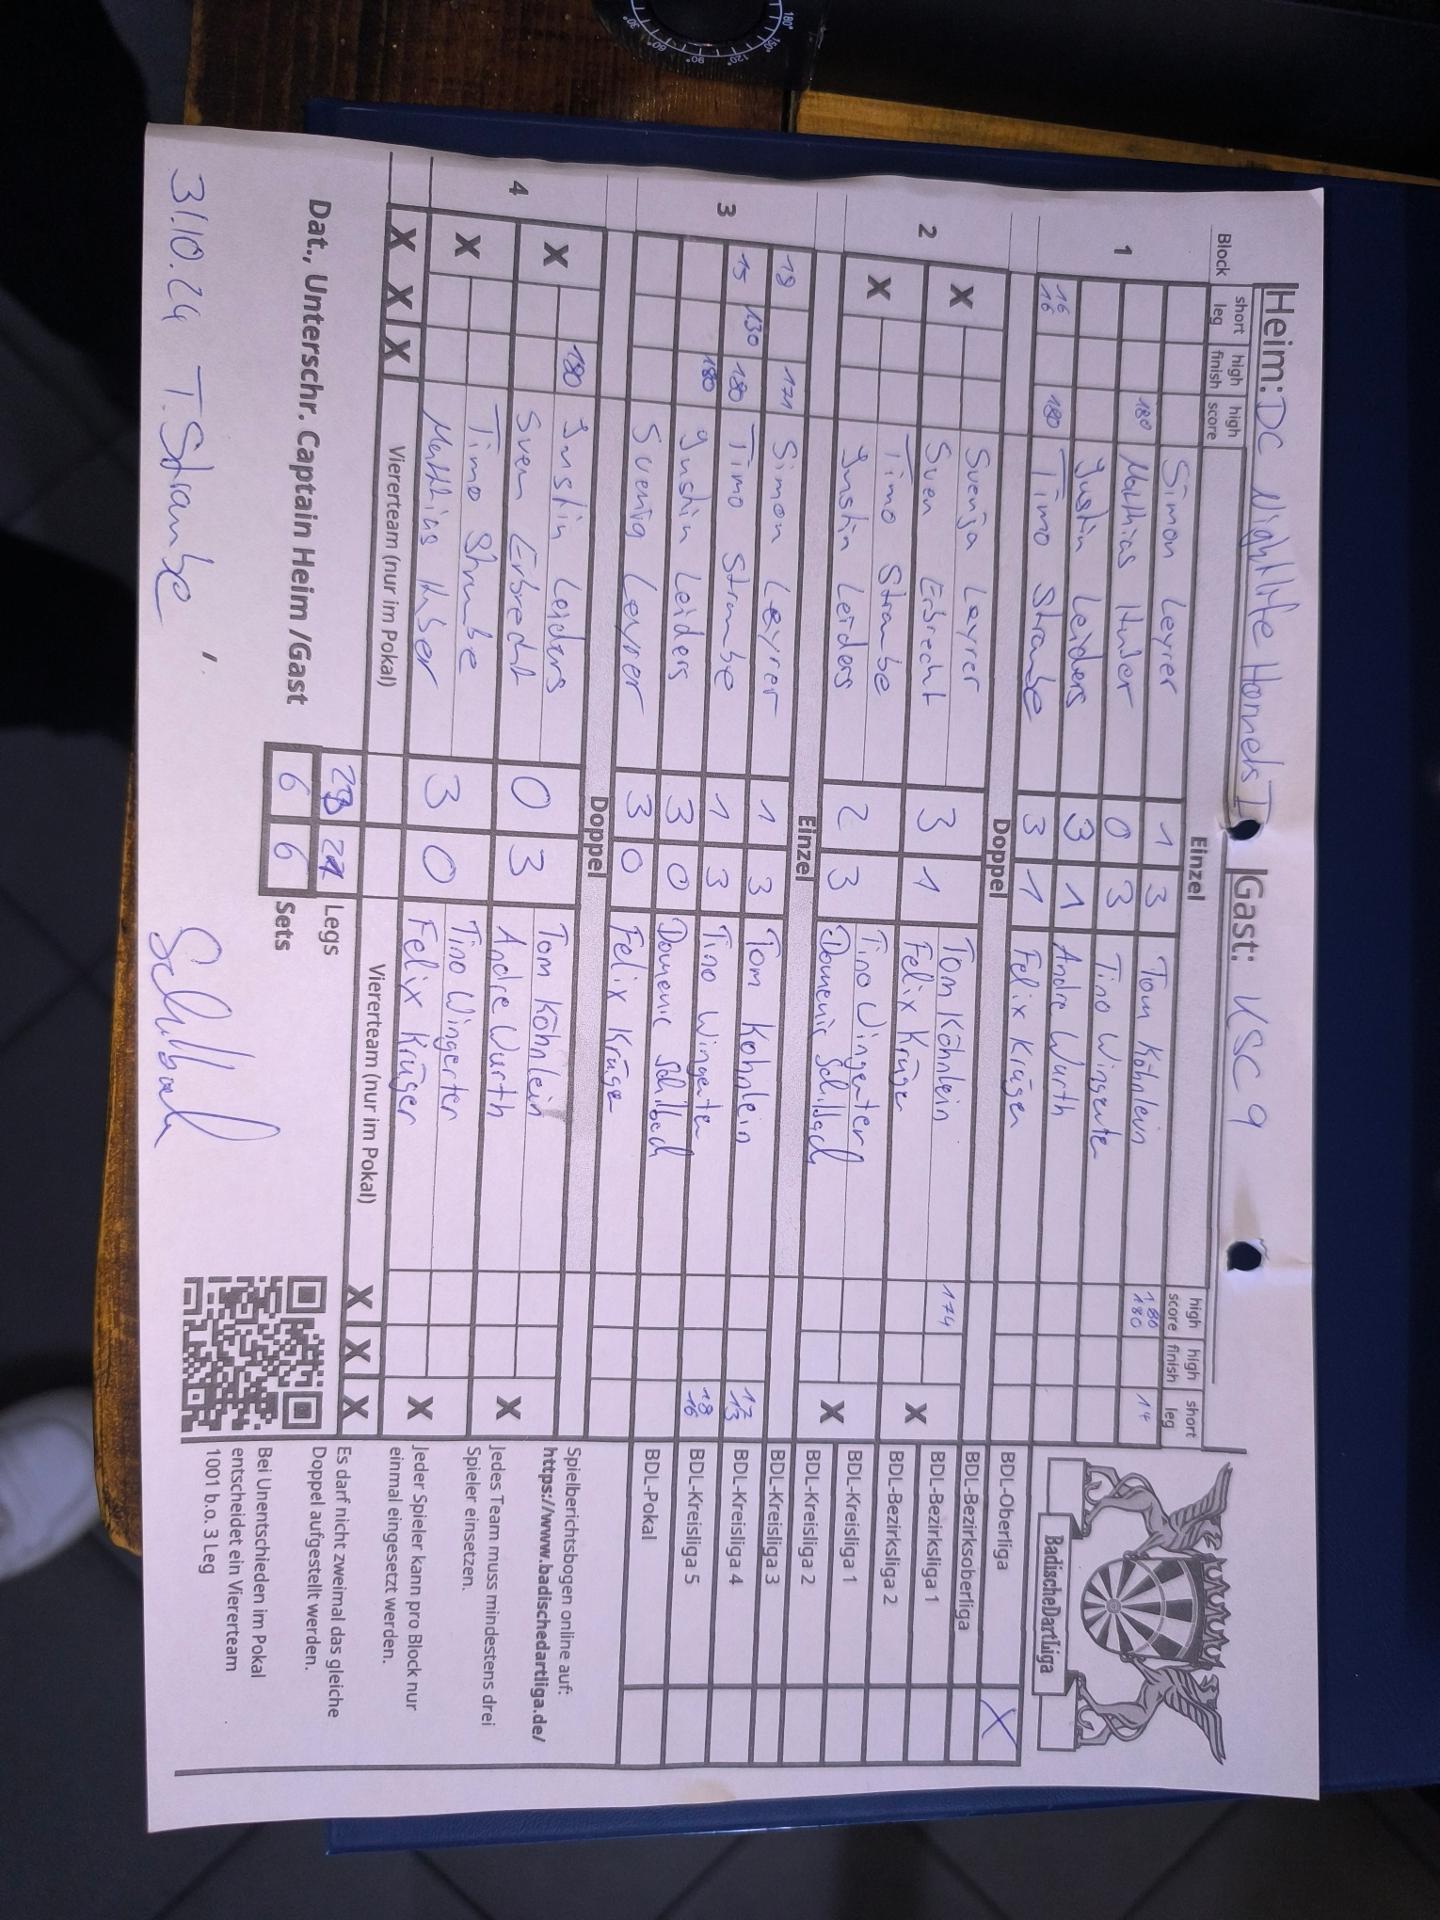 Heim: DC Nightlife Hornets I Gast: KSC 9
Block short leg high finish high score Einzel high score high finish short leg
1
Simon Leyrer 1 3 Tom Köhnlein 180 180 14
180 Matthias Huber 0 3 Tino Wingerter
Justin Leiders 3 1 Andre Wurth
16 16 180 Timo Straube 3 1 Felix Krüger
Doppel
2
X Svenja Leyrer 3 1 Tom Köhnlein 174 X
Sven Erbrecht Felix Krüger
X Timo Straube 2 3 Tino Wingerter X
Justin Leiders Domenic Schilbach
Einzel
3
18 171 Simon Leyrer 1 3 Tom Köhnlein 17 13
15 130 180 Timo Straube 1 3 Tino Wingerter 18 16
180 Justin Leiders 3 0 Domenic Schilbach
Svenja Leyrer 3 0 Felix Krüger
Doppel
4
X 180 Justin Leiders 0 3 Tom Köhnlein X
Sven Erbrecht Andre Wurth
X Timo Straube 3 0 Tino Wingerter X
Matthias Huber Felix Krüger
X X X Viererteam (nur im Pokal) Viererteam (nur im Pokal) X X X
Legs
Dat., Unterschr. Captain Heim /Gast 6 6 Sets
31.10.24 T. Straube Schilbach
BadischeDartLiga
BDL-Oberliga X
BDL-Bezirksoberliga
BDL-Bezirksliga 1
BDL-Bezirksliga 2
BDL-Kreisliga 1
BDL-Kreisliga 2
BDL-Kreisliga 3
BDL-Kreisliga 4
BDL-Kreisliga 5
BDL-Pokal
Spielberichtsbogen online auf:
https://www.badischedartliga.de/
Jedes Team muss mindestens drei
Spieler einsetzen.
Jeder Spieler kann pro Block nur
einmal eingesetzt werden.
Es darf nicht zweimal das gleiche
Doppel aufgestellt werden.
Bei Unentschieden im Pokal
entscheidet ein Viererteam
1001 b.o. 3 Leg
180° 150° 120° 90° 60° 30°